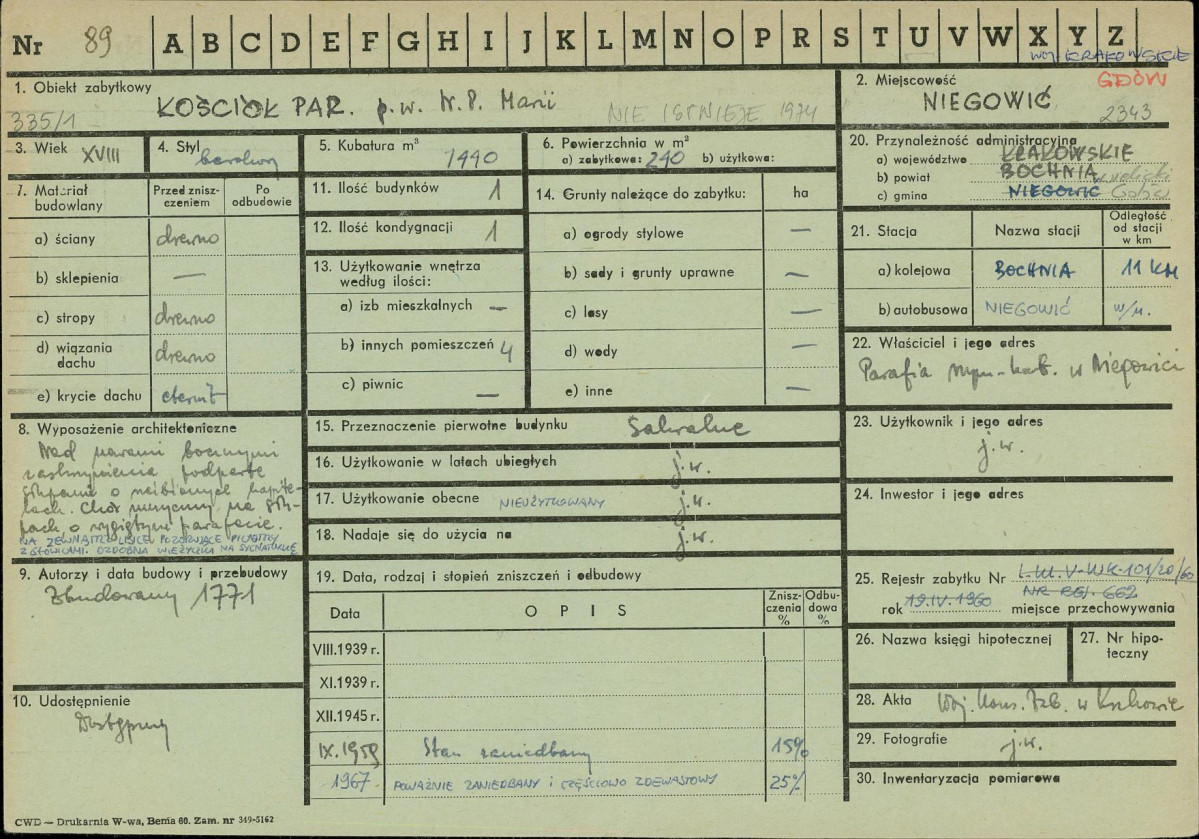 Nr 89 A B C D E F G H I J K L M N O P R S T U V W X Y Z
WOJ. KRAKOWSKIE
1. Obiekt zabytkowy
KOŚCIÓŁ PAR. p.w. N.P. Marii
335/1
NIE ISTNIEJE 1974
2. Miejscowość GDÓW
NIEGOWIĆ
2343
3. Wiek XVIII
4. Styl barokowy
5. Kubatura m³ 1440
6. Powierzchnia w m²
a) zabytkowa: 240 b) użytkowa:
20. Przynależność administracyjna
a) województwo KRAKOWSKIE
b) powiat BOCHNIA wielicki
c) gmina NIEGOWIĆ Gdów
7. Materiał budowlany
Przed zniszczeniem
Po odbudowie
a) ściany drewno
b) sklepienia —
c) stropy drewno
d) wiązania dachu drewno
e) krycie dachu eternit
11. Ilość budynków 1
12. Ilość kondygnacji 1
13. Użytkowanie wnętrza według ilości:
a) izb mieszkalnych —
b) innych pomieszczeń 4
c) piwnic —
14. Grunty należące do zabytku: ha
a) ogrody stylowe —
b) sady i grunty uprawne —
c) lasy —
d) wody —
e) inne —
21. Stacja
Nazwa stacji
Odległość od stacji w km
a) kolejowa BOCHNIA 11 KM
b) autobusowa NIEGOWIĆ w/m.
22. Właściciel i jego adres
Parafia rzym-kat. w Niegowici
8. Wyposażenie architektoniczne
Nad nawami bocznymi
zasklepienia podparte
słupami o rzeźbionych kapite-
lach. Chór muzyczny na słu-
pach o wygiętym parapecie.
NA ZEWNĄTRZ LISTEW POZORUJĄCE PILASTRY
Z GŁOWICAMI. OZDOBNA WIEŻYCZKA NA SYGNATURKĘ
15. Przeznaczenie pierwotne budynku Sakralne
16. Użytkowanie w latach ubiegłych j.w.
17. Użytkowanie obecne NIEUŻYTKOWANY j.w.
18. Nadaje się do użycia na j.w.
23. Użytkownik i jego adres
j.w.
24. Inwestor i jego adres
9. Autorzy i data budowy i przebudowy
Zbudowany 1771
10. Udostępnienie
Dostępny
19. Data, rodzaj i stopień zniszczeń i odbudowy
Data
O P I S
Zniszczenia %
Odbudowa %
VIII.1939 r.
XI.1939 r.
XII.1945 r.
IX.1959 Stan zaniedbany 15%
1967 POWAŻNIE ZANIEDBANY i CZĘŚCIOWO ZDEWASTOWY 25%
25. Rejestr zabytku Nr L.KL.V-WK-101/20/60
NR REJ. 662
rok 19.IV.1960 miejsce przechowywania
26. Nazwa księgi hipotecznej
27. Nr hipoteczny
28. Akta Woj. Kons. Zab. w Krakowie
29. Fotografie j.w.
30. Inwentaryzacja pomiarowa
CWD — Drukarnia W-wa, Bema 60. Zam. nr 349-5162